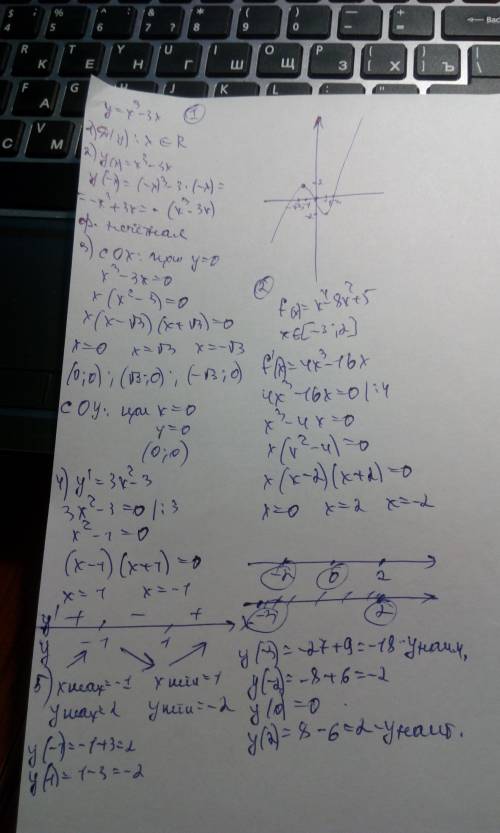 y=x³-3x ①
1) D(y): x ∈ R
2) y(x)=x³-3x
y(-x)=(-x)³-3·(-x)=
=-x³+3x=-(x³-3x)
ф. нечётная
3) с OX: при y=0
x³-3x=0
x(x²-3)=0
x(x-√3)(x+√3)=0
x=0 x=√3 x=-√3
(0;0); (√3;0); (-√3;0)
с OY: при x=0
y=0
(0;0)
4) y'=3x²-3
3x²-3=0 |:3
x²-1=0
(x-1)(x+1)=0
x=1 x=-1
y' + - + x
y -1 1
5) xmax=-1 xmin=1
ymax=2 ymin=-2
y(-1)=-1+3=2
y(1)=1-3=-2
②
f(x)=x⁴-8x²+5
x∈[-3;2]
f'(x)=4x³-16x
4x³-16x=0 |:4
x³-4x=0
x(x²-4)=0
x(x-2)(x+2)=0
x=0 x=2 x=-2
-2 0 2
-3 2
y(-3)=-27+9=-18-yнаим,
y(-2)=-8+6=-2
y(0)=0
y(2)=8-6=2-yнаиб.